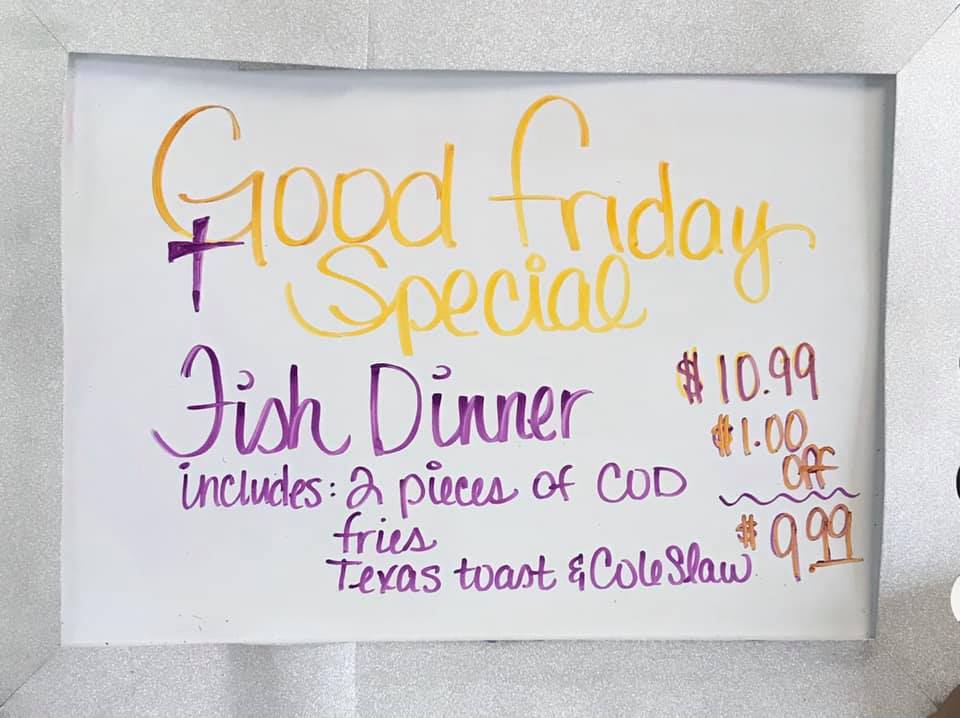 Good friday
Special
Fish Dinner
$10.99
$1.00
off
includes: 2 pieces of COD
fries
Texas toast & ColeSlaw
$9.99